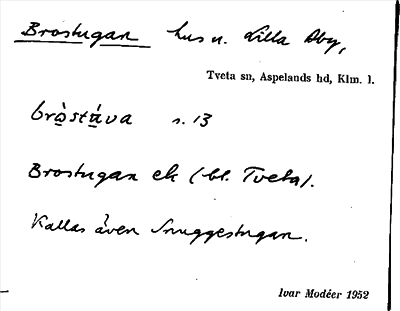 Brostugan hus u. Lilla Aby,
Tveta sn, Aspelands hd, Klm. l.
bròstáva s. 13
Brostugan ek (bl. Tveta).
Kallas även Snuggestugan.
Ivar Modéer 1952